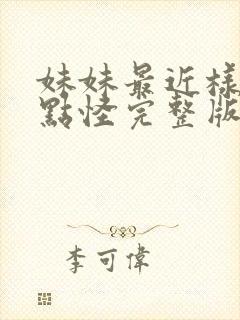 妹妹最近樣
點怪完整版
李可偉